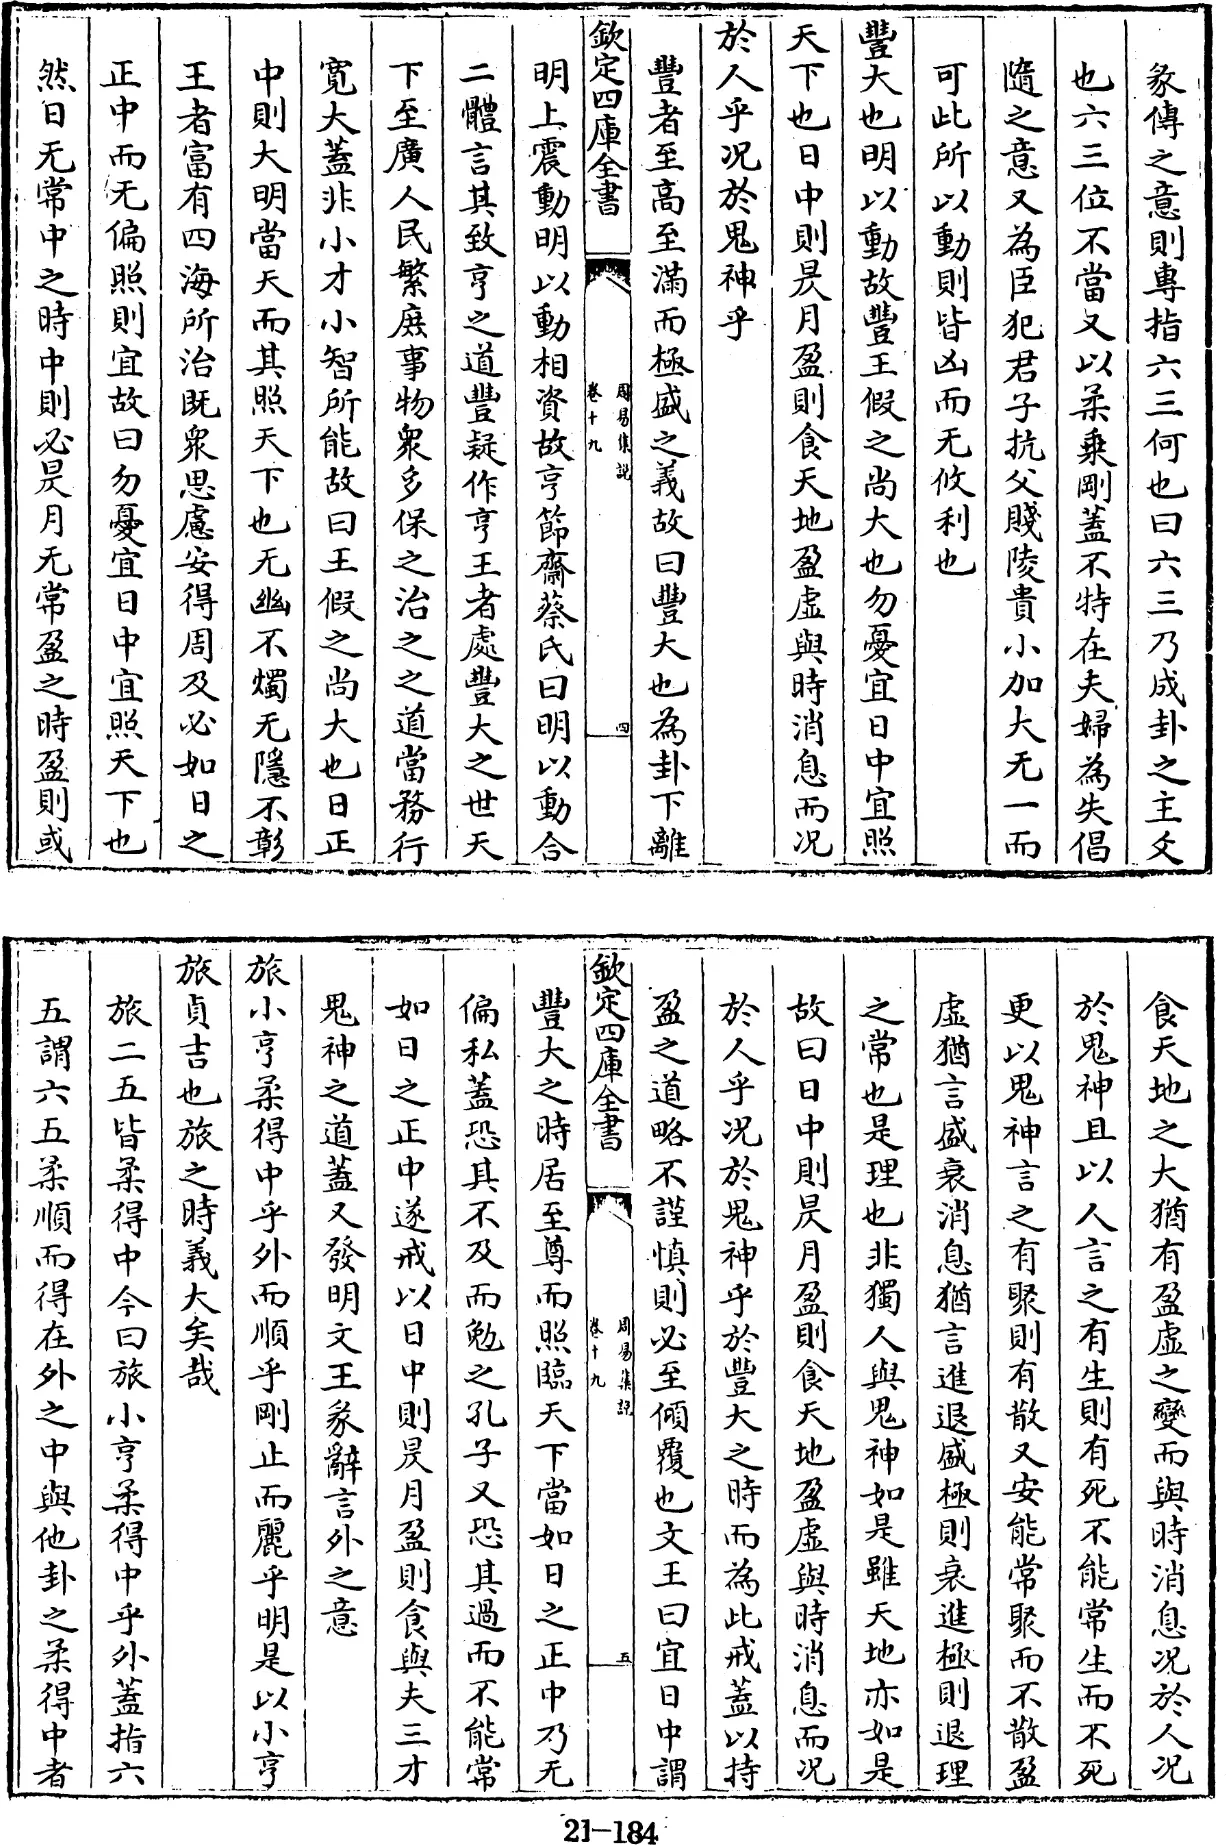 彖傳之意則專指六三何也曰六三乃成卦之主爻
也六三位不當又以柔乗剛蓋不特在夫婦為失倡
隨之意又為臣犯君子抗父賤陵貴小加大无一而
可此所以動則皆凶而无攸利也
豐大也明以動故豐王假之尚大也勿憂宜日中宜照
天下也日中則昃月盈則食天地盈虛與時消息而况
於人乎况於鬼神乎
豐者至髙至滿而極盛之義故曰豐大也為卦下離
欽定四庫全書
周易集說
卷十九
四
明上震動明以動相資故亨節齋蔡氏曰明以動合
二體言其致亨之道豐疑作亨王者處豐大之世天
下至廣人民繁庶事物衆多保之治之之道當務行
寛大蓋非小才小智所能故曰王假之尚大也日正
中則大明當天而其照天下也无幽不燭无隱不彰
王者富有四海所治既衆思慮安得周及必如日之
正中而无偏照則宜故曰勿憂宜日中宜照天下也
然日无常中之時中則必昃月无常盈之時盈則或
食天地之大猶有盈虛之變而與時消息况於人况
於鬼神且以人言之有生則有死不能常生而不死
更以鬼神言之有聚則有散又安能常聚而不散盈
虛猶言盛衰消息猶言進退盛極則衰進極則退理
之常也是理也非獨人與鬼神如是雖天地亦如是
故曰日中則昃月盈則食天地盈虛與時消息而况
於人乎况於鬼神乎於豐大之時而為此戒蓋以持
盈之道略不謹慎則必至傾覆也文王曰宜日中謂
欽定四庫全書
周易集說
卷十九
五
豐大之時居至尊而照臨天下當如日之正中乃无
偏私蓋恐其不及而勉之孔子又恐其過而不能常
如日之正中遂戒以日中則昃月盈則食與夫三才
鬼神之道蓋又發明文王彖辭言外之意
旅小亨柔得中乎外而順乎剛止而麗乎明是以小亨
旅貞吉也旅之時義大矣哉
旅二五皆柔得中今曰旅小亨柔得中乎外蓋指六
五謂六五柔順而得在外之中與他卦之柔得中者
21-184